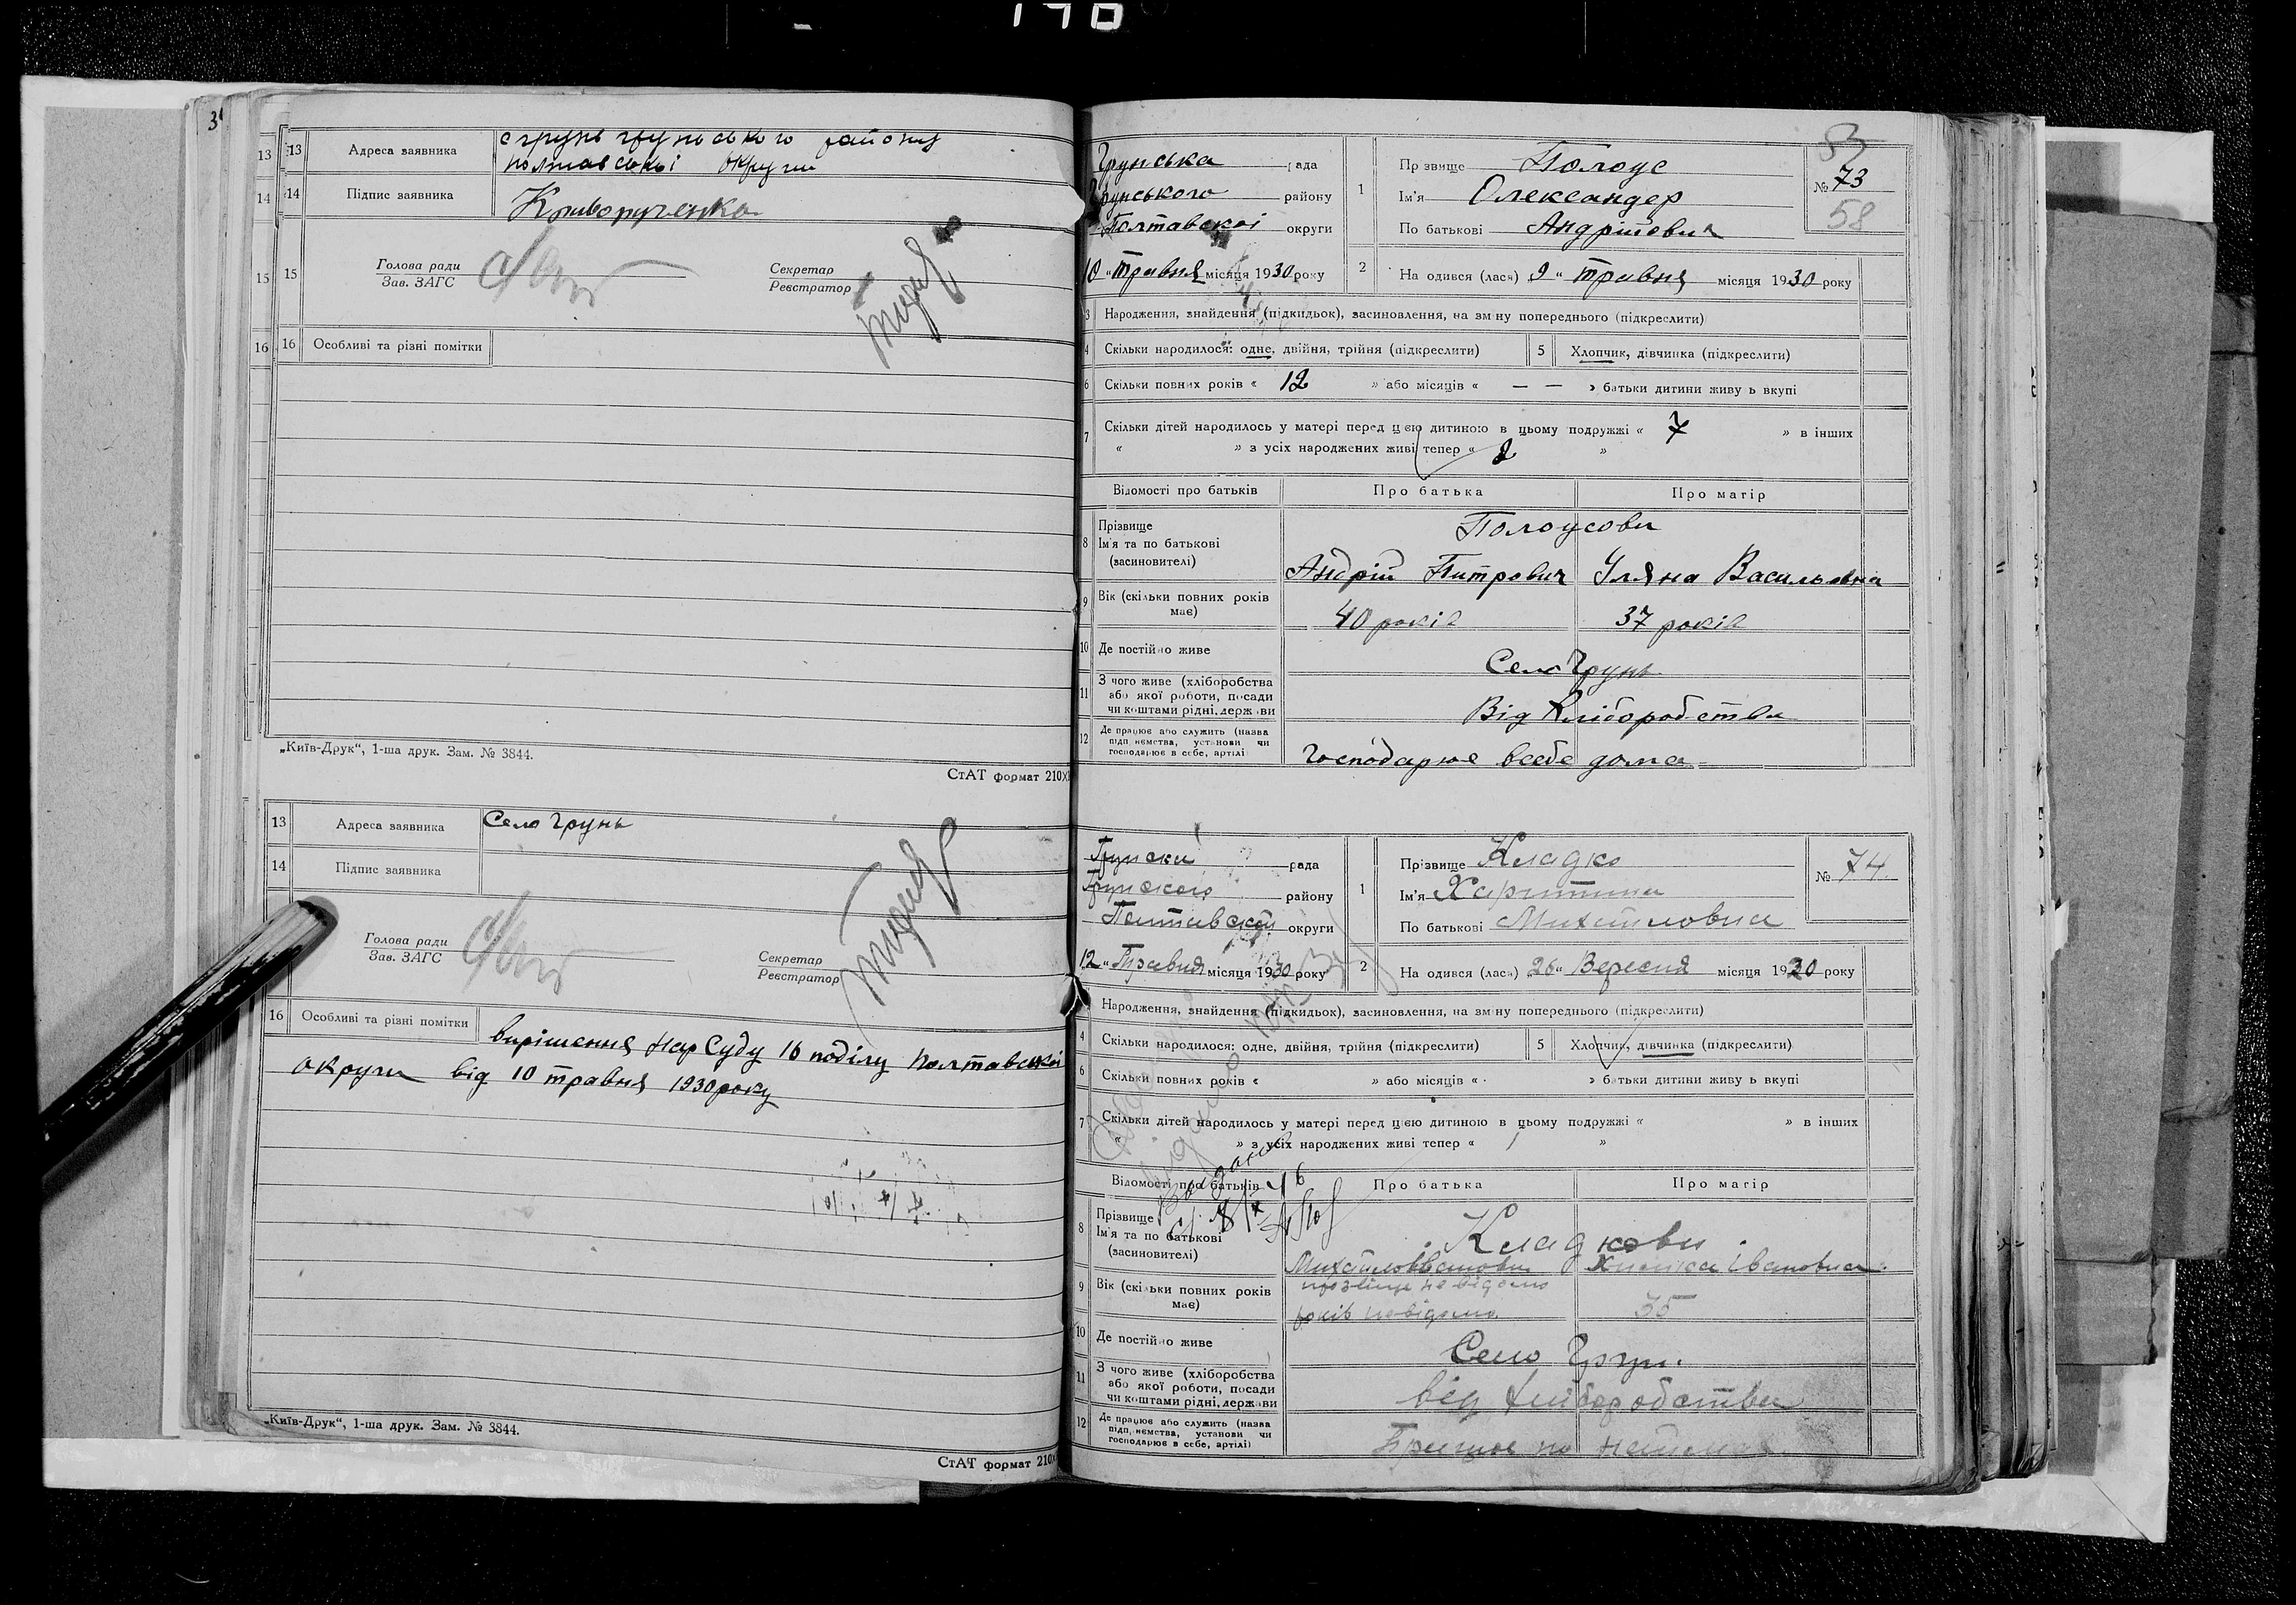 13 13 Адреса заявника с грунь грунського району
полтавської округи
14 14 Підпис заявника Криворученко
15 15 Голова ради
Зав. ЗАГС
Секретар
Реєстратор
16 16 Особливі та різні помітки
„Київ-Друк“, 1-ша друк. Зам. № 3844.
СтАТ формат 210
13 Адреса заявника Село Грунь
14 Підпис заявника
Голова ради
Зав. ЗАГС
Секретар
Реєстратор
16 Особливі та різні помітки
вирішення Нар Суду 16 поділу Полтавської
округи від 10 травня 1930 року
„Київ-Друк“, 1-ша друк. Зам. № 3844.
СтАТ формат 210
Грунська рада
Грунського району
Полтавскої округи
10 „ Травня місяця 1930 року
1 Прізвище Полоус
Ім'я Олександер
По батькові Андрійович
№ 73
58
2 На одився (лася) 9 „ Травня місяця 1930 року
3 Народження, знайдення (підкидьок), засиновлення, на зміну попереднього (підкреслити)
4 Скільки народилося: одне, двійня, трійня (підкреслити) 5 Хлопчик, дівчинка (підкреслити)
6 Скільки повних років « 12 » або місяців « — — » батьки дитини живу ь вкупі
7 Скільки дітей народилось у матері перед цією дитиною в цьому подружжі « 7 » в інших
« » з усіх народжених живі тепер « 8 »
Відомості про батьків Про батька Про матір
8 Прізвище
Ім'я та по батькові
(засиновителі)
Полоусови
Андрій Питрович Уляна Васильовна
9 Вік (скільки повних років
має)
40 років 37 років
10 Де постійно живе Село Грунь
11 З чого живе (хліборобства
або якої роботи, посади
чи коштами рідні, держави
Від Хліборобства
12 Де працює або служить (назва
підп, немства, установи чи
господарює в себе, артілі
Господарює всебе дома
Грунски рада
Грунского району
Полтавскої округи
12 „ Травня місяця 1930 року
1 Прізвище Кладко
Ім'я Харитина
По батькові Михайловна
№ 74
2 На одився (лася) 26 „ Вересня місяця 1920 року
Народження, знайдення (підкидьок), засиновлення, на зміну попереднього (підкреслити)
4 Скільки народилося: одне, двійня, трійня (підкреслити) 5 Хлопчик, дівчинка (підкреслити)
6 Скільки повних років « » або місяців « » батьки дитини живу ь вкупі
7 Скільки дітей народилось у матері перед цією дитиною в цьому подружжі « » в інших
« » з усіх народжених живі тепер « »
Відомості про батьків Про батька Про матір
8 Прізвище
Ім'я та по батькові
(засиновителі)
Кладкови
Михайло Іванович Івановна
9 Вік (скільки повних років
має)
прозвище не відомо
років невідомо 35
10 Де постійно живе Село Грун.
11 З чого живе (хліборобства
або якої роботи, посади
чи коштами рідні, держави
від хліборобства
12 Де працює або служить (назва
підп, немства, установи чи
господарює в себе, артілі)
Працює по наймах